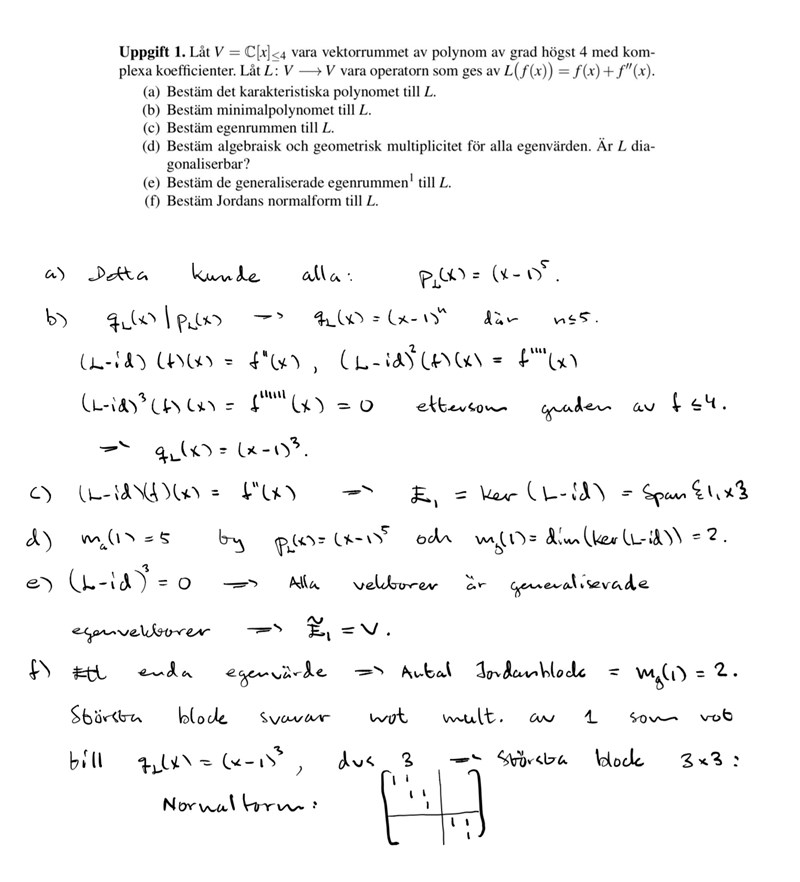 Uppgift 1. Låt V = ℂ[x]≤4 vara vektorrummet av polynom av grad högst 4 med kom-
plexa koefficienter. Låt L: V ⟶ V vara operatorn som ges av L(f(x)) = f(x) + f''(x).
(a) Bestäm det karakteristiska polynomet till L.
(b) Bestäm minimalpolynomet till L.
(c) Bestäm egenrummen till L.
(d) Bestäm algebraisk och geometrisk multiplicitet för alla egenvärden. Är L dia-
gonaliserbar?
(e) Bestäm de generaliserade egenrummen¹ till L.
(f) Bestäm Jordans normalform till L.
a) Detta kunde alla: p_L(x) = (x-1)^5.
b) q_L(x) | p_L(x) ⇒ q_L(x) = (x-1)^n där n≤5.
(L-id)(f)(x) = f''(x), (L-id)²(f)(x) = f''''(x)
(L-id)³(f)(x) = f''''''(x) = 0 eftersom graden av f ≤4.
⇒ q_L(x) = (x-1)³.
c) (L-id)(f)(x) = f''(x) ⇒ E_1 = ker(L-id) = Span{1,x}
d) m_a(1) = 5 ty p_L(x) = (x-1)^5 och m_g(1) = dim(ker(L-id)) = 2.
e) (L-id)³ = 0 ⇒ Alla vektorer är generaliserade
egenvektorer ⇒ Ẽ_1 = V.
f) Ett enda egenvärde ⇒ Antal Jordanblock = m_g(1) = 2.
Största block svarar mot mult. av 1 som rot
till q_L(x) = (x-1)³, dvs 3 ⇒ Största block 3×3:
Normalform: [1 1
1 1
1
1 1
1]